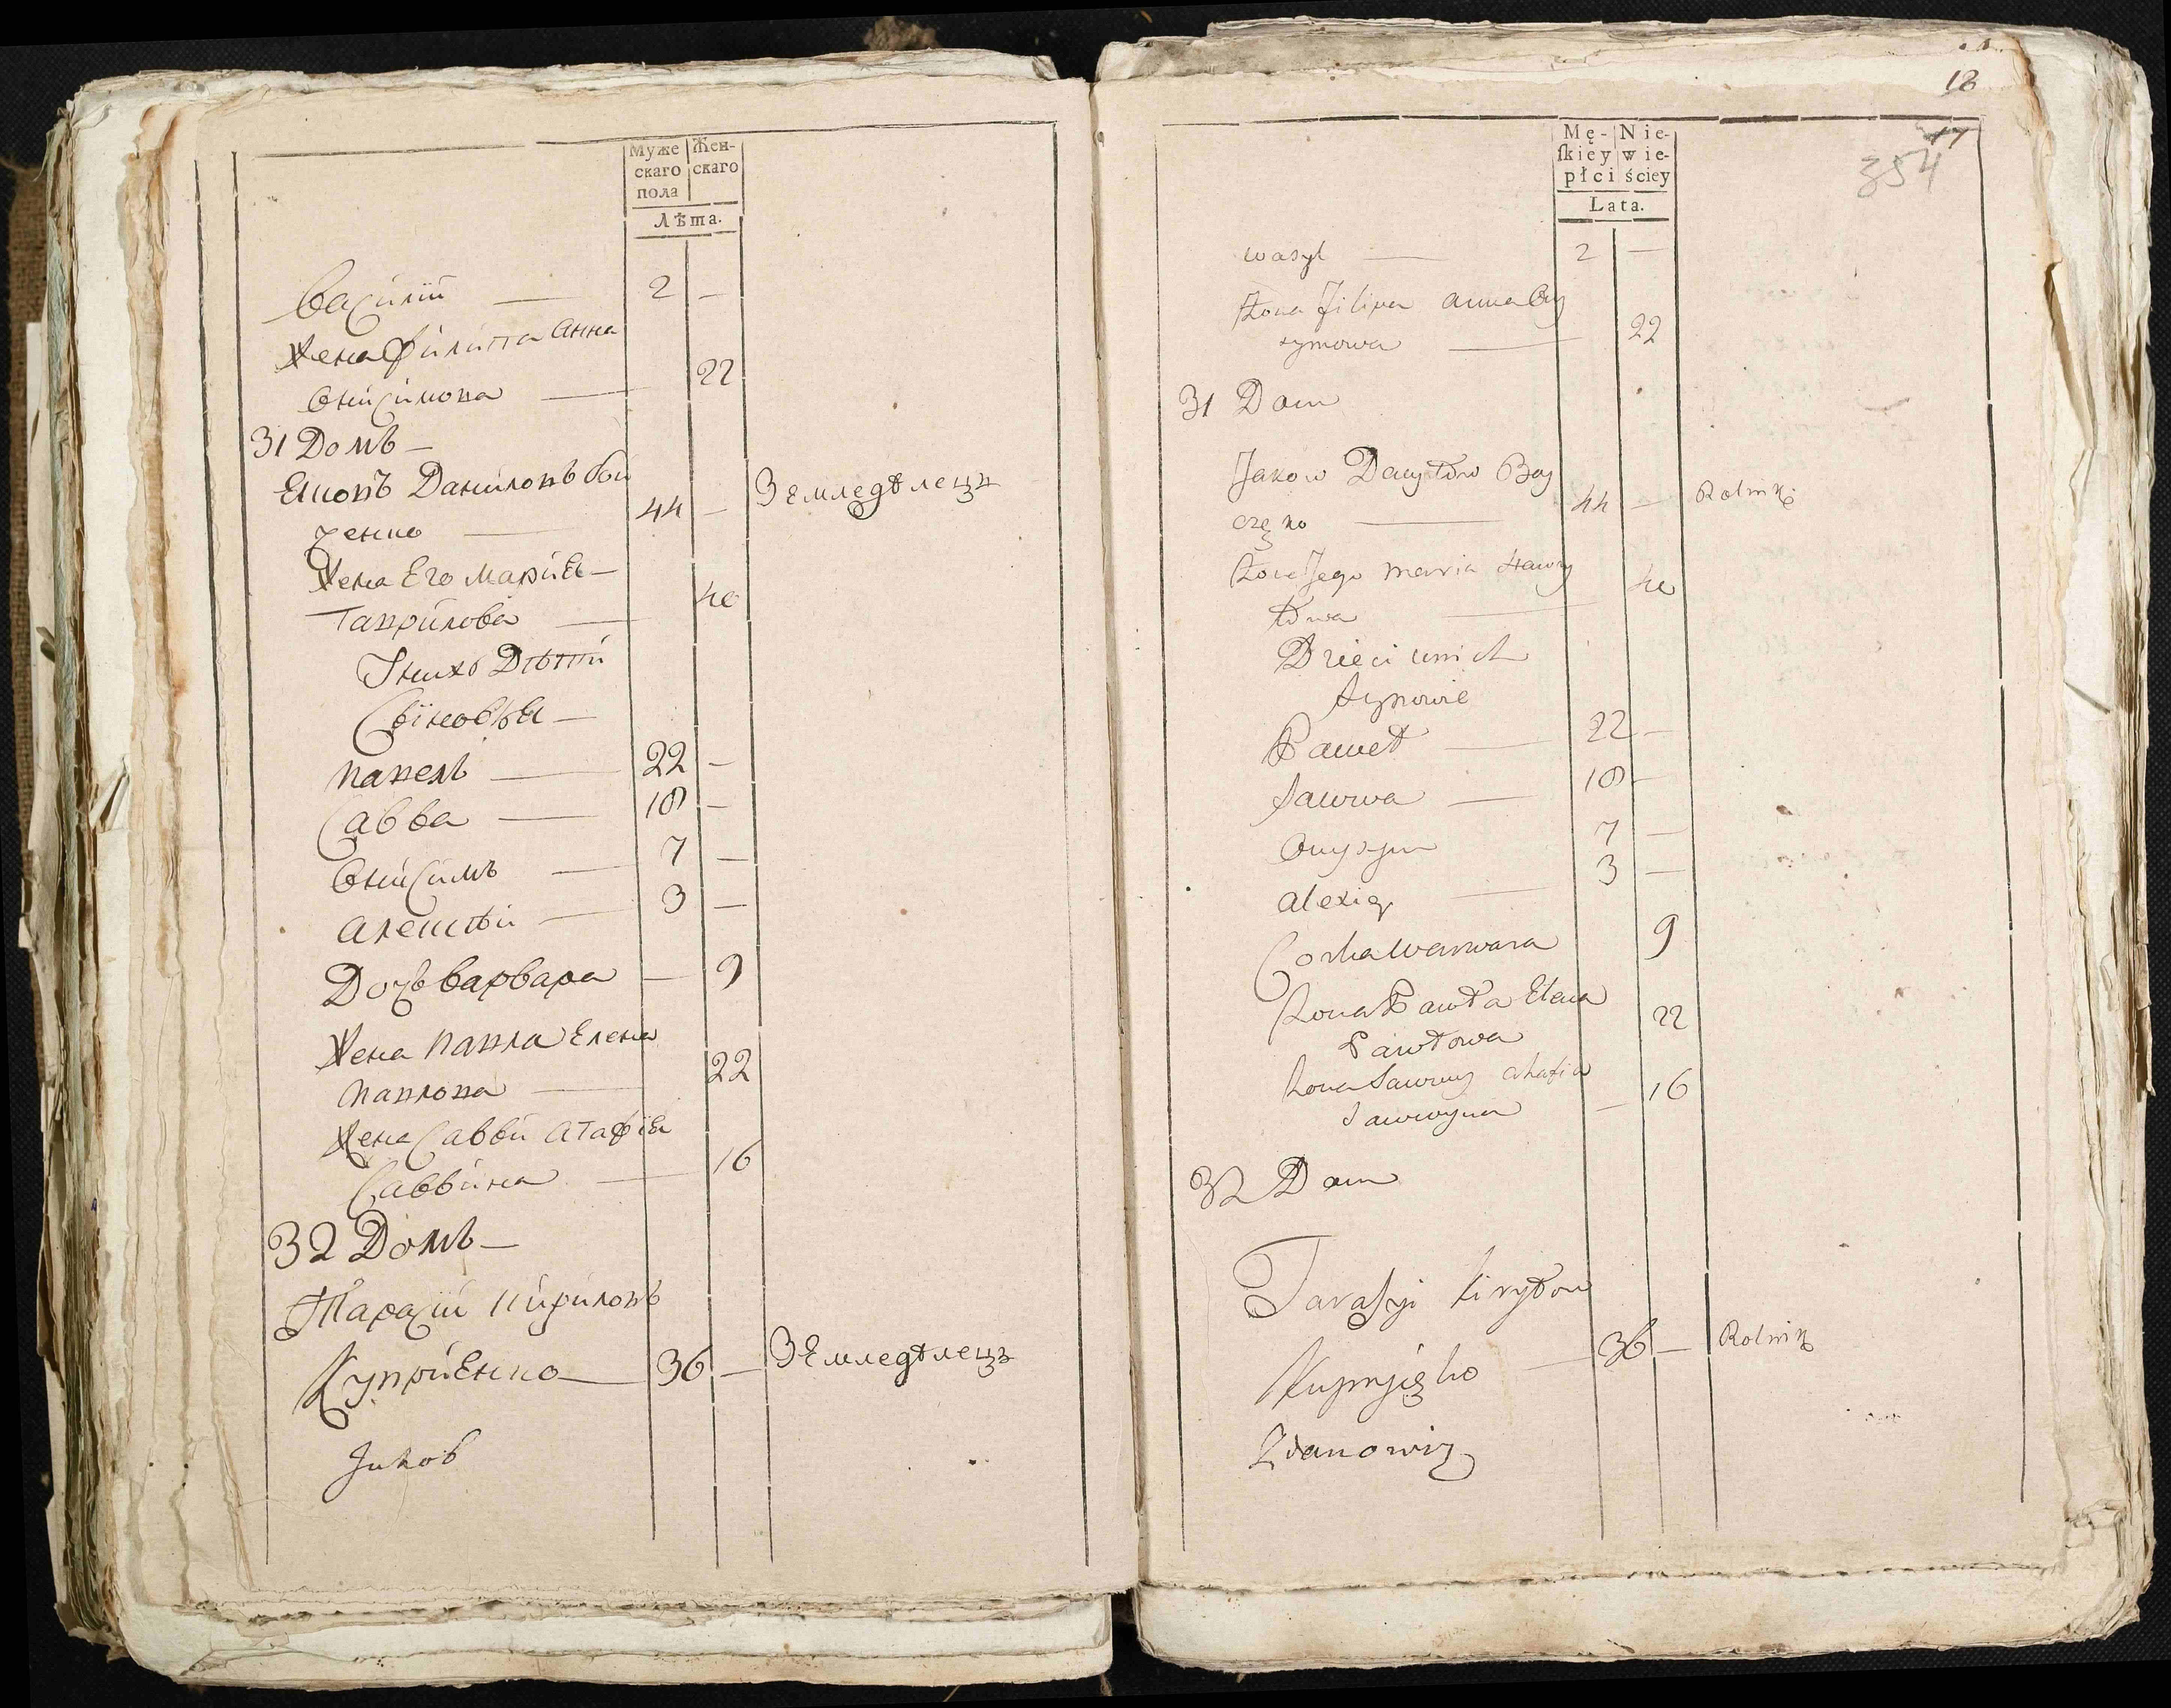 Муже
скаго
пола
Жен-
скаго
Лѣта.
Василіи — 2 —
Жена Филиппа Анна
Онисимова — 22
31 Домъ —
Яковъ Даниловъ Бои
ченко — 44 — Земледѣлецъ
Жена Его Марія —
Гаврилова — 40
У нихъ Дѣти
Сыновья —
Павелъ — 22 —
Савва — 18 —
Онисимъ — 7 —
Алексѣй — 3 —
Дочь Варвара — 9
Жена Павла Елена
Павлова — 22
Жена Саввы Агафія
Саввина — 16
32 Домъ —
Тарасіи Кириловъ
Куприенко — 36 — Земледѣлецъ
Jakob
18
17
354
Mę-
ſkiey
płci
Nie-
wie-
ściey
Lata.
Wasyl — 2 —
Żona Filipa Anna Ony
symowa — 22
31 Dom
Jakow Daniłow Boy
częko — 44 — Rolnik
Żona Jego Maria Hawry
łowa — 40
Dzieci u nich
Synowie
Paweł — 22 —
Sawwa — 18 —
Onysym 7 —
Alexiey — 3 —
Corka Warwara 9
Żona Pawła Elena
Pawłowa 22
Żona Sawwy Ahafia
Sawwyna — 16
32 Dom
Tarasyi Kiryłow
Kupryięko — 36 — Rolnik
Zdanowicz